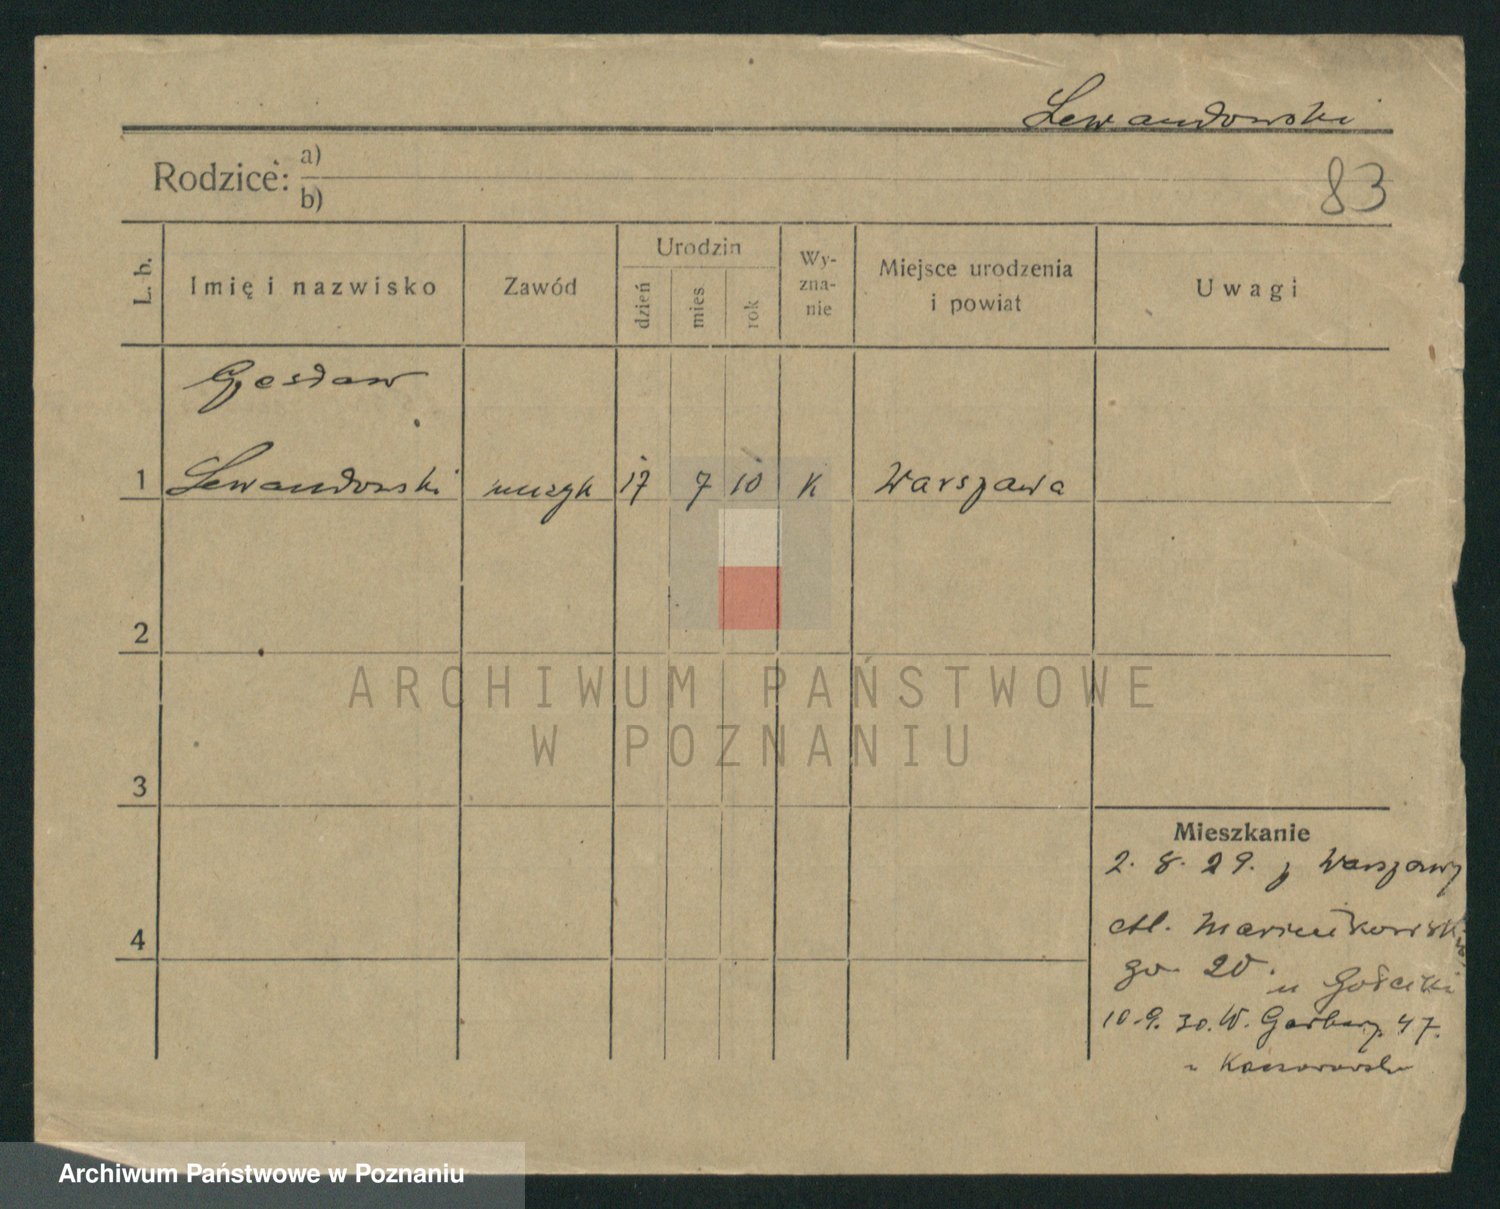 Lewandowski
Rodzice: a)
b)
83
L. b.
Imię i nazwisko
Zawód
Urodzin
dzień
mies
rok
Wy-
zna-
nie
Miejsce urodzenia
i powiat
Uwagi
Czesław
1 Lewandowski muzyk 17 7 10 K Warszawa
2
3
4
ARCHIWUM PAŃSTWOWE
W POZNANIU
Mieszkanie
2. 8. 29. z Warszawy
Al. Marcinkowskie
go 20. u
10. 9. 30. W. Garbary 47.
Archiwum Państwowe w Poznaniu